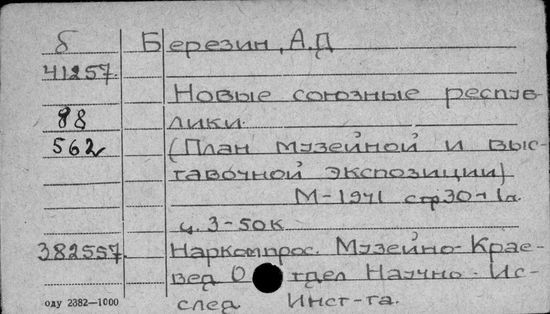 б Березин, А.Д
41257.
Новые союзные респуб-
88 лики.
562 (План музейной и выс-
тавочной экспозиции)
М-1941 стр 30+1л.
ц. 3-50к
382557. Наркомпрос. Музейно-Крае-
вед Отдел Научно-Ис-
след Инст-та.
оду 2382—1000